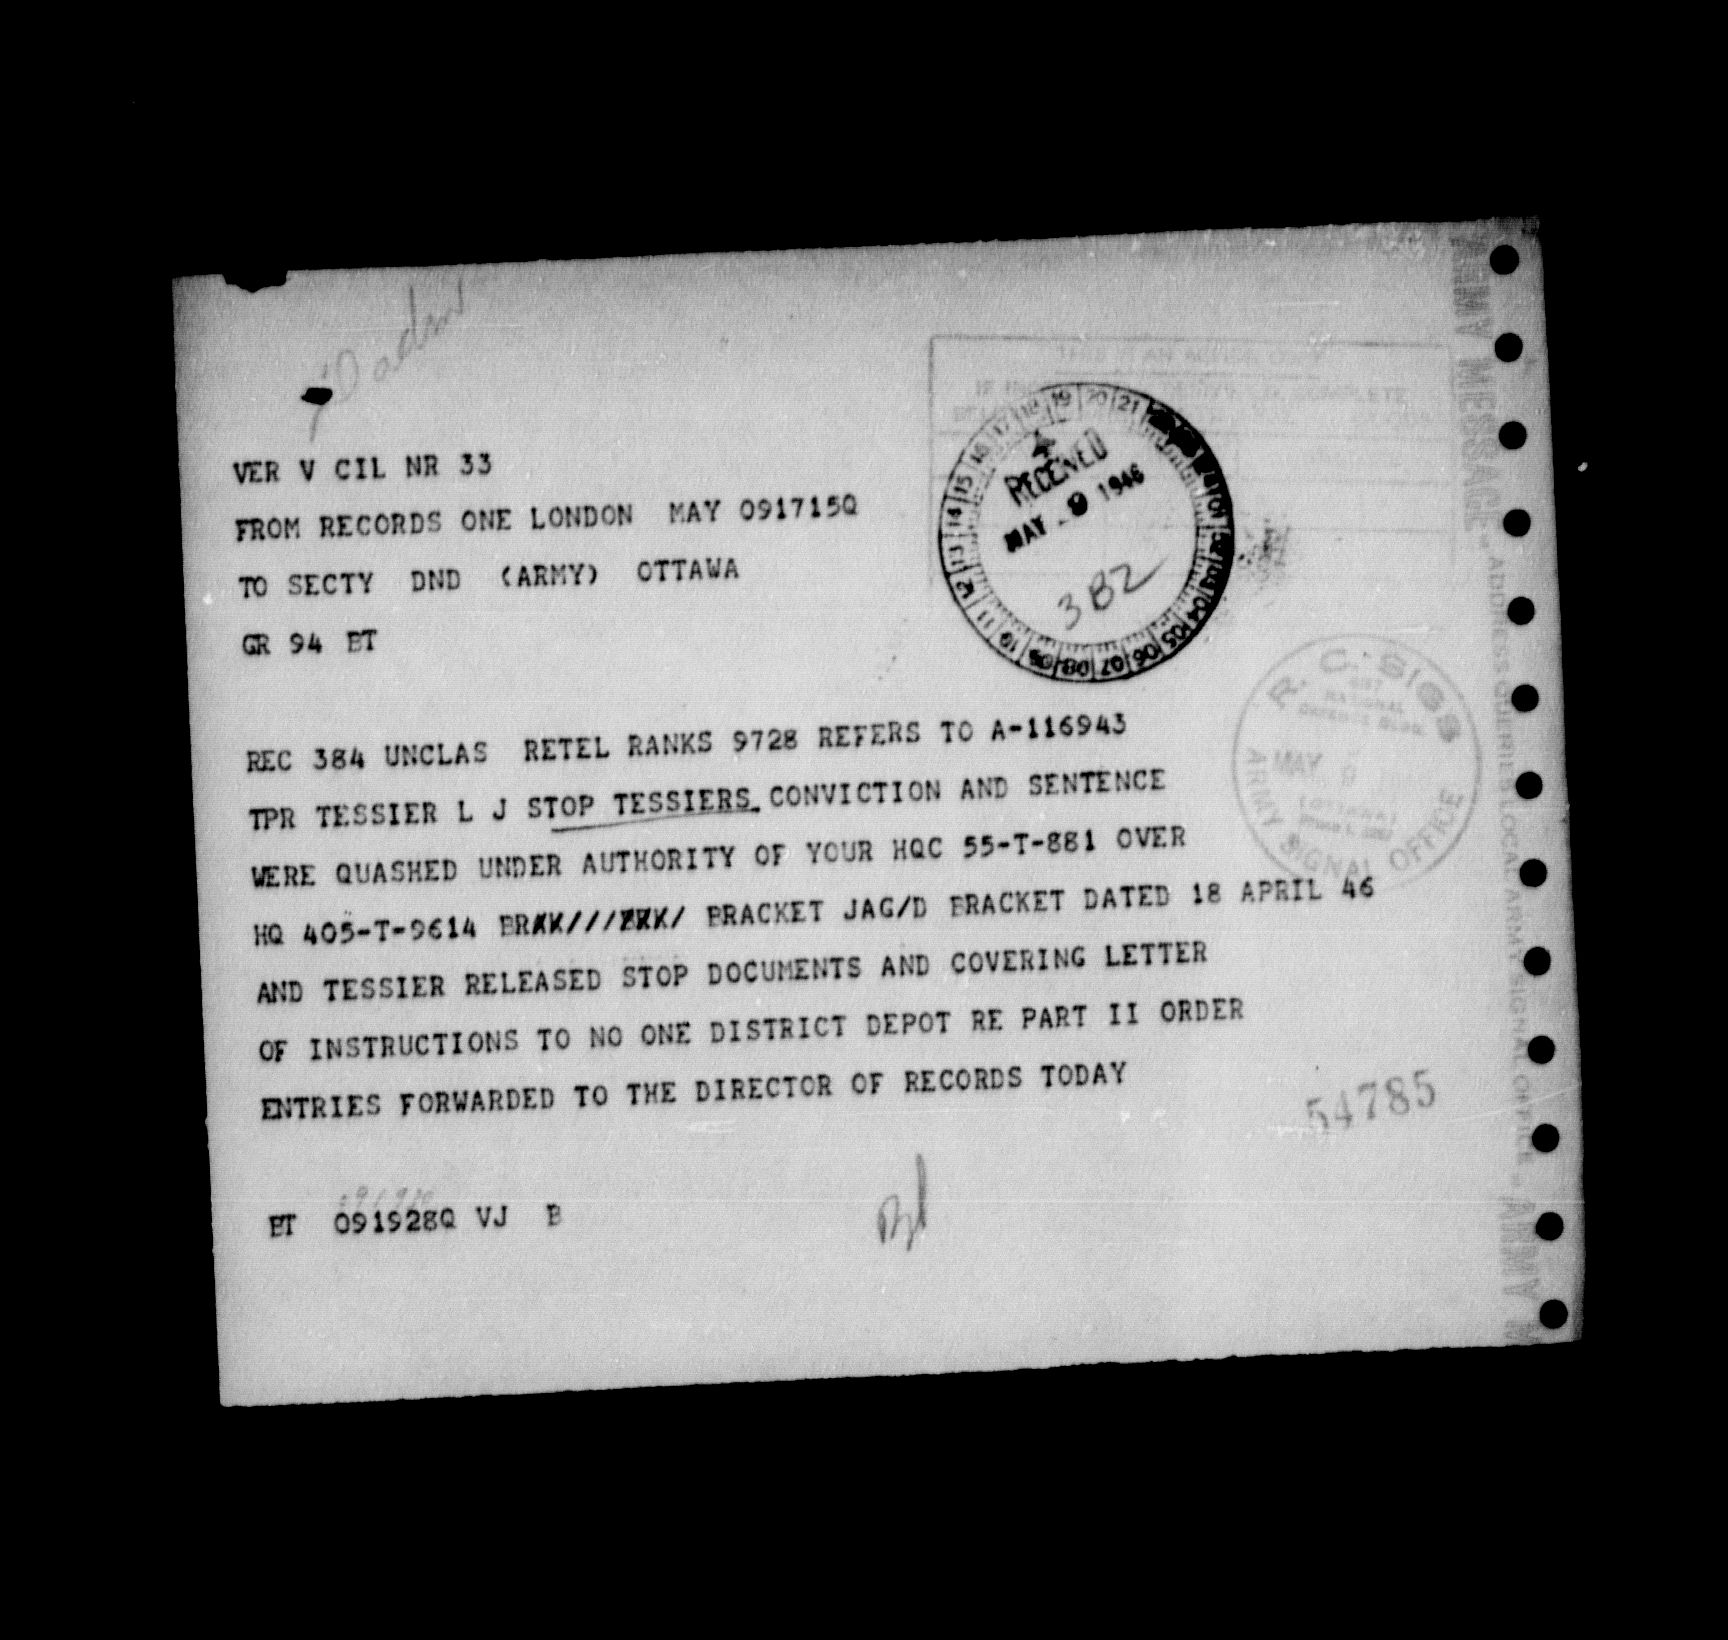 VER V CIL NR 33
FROM RECORDS ONE LONDON MAY 091715Q
TO SECTY DND (ARMY) OTTAWA
GR 94 BT
19 20 21
RECEIVED
MAY 9 1946
3B2
R.C. SIGS
MAY 9
ARMY SIGNAL OFFICE
REC 384 UNCLAS RETEL RANKS 9728 REFERS TO A-116943
TPR TESSIER L J STOP TESSIERS CONVICTION AND SENTENCE
WERE QUASHED UNDER AUTHORITY OF YOUR HQC 55-T-881 OVER
HQ 405-T-9614 BRKK///BRK/ BRACKET JAG/D BRACKET DATED 18 APRIL 46
AND TESSIER RELEASED STOP DOCUMENTS AND COVERING LETTER
OF INSTRUCTIONS TO NO ONE DISTRICT DEPOT RE PART II ORDER
ENTRIES FORWARDED TO THE DIRECTOR OF RECORDS TODAY
54785
BT 091928Q VJ B
ARMY MESSAGE - ADDRESS QUERIES LOCAL ARMY SIGNAL OFFICE - ARMY M